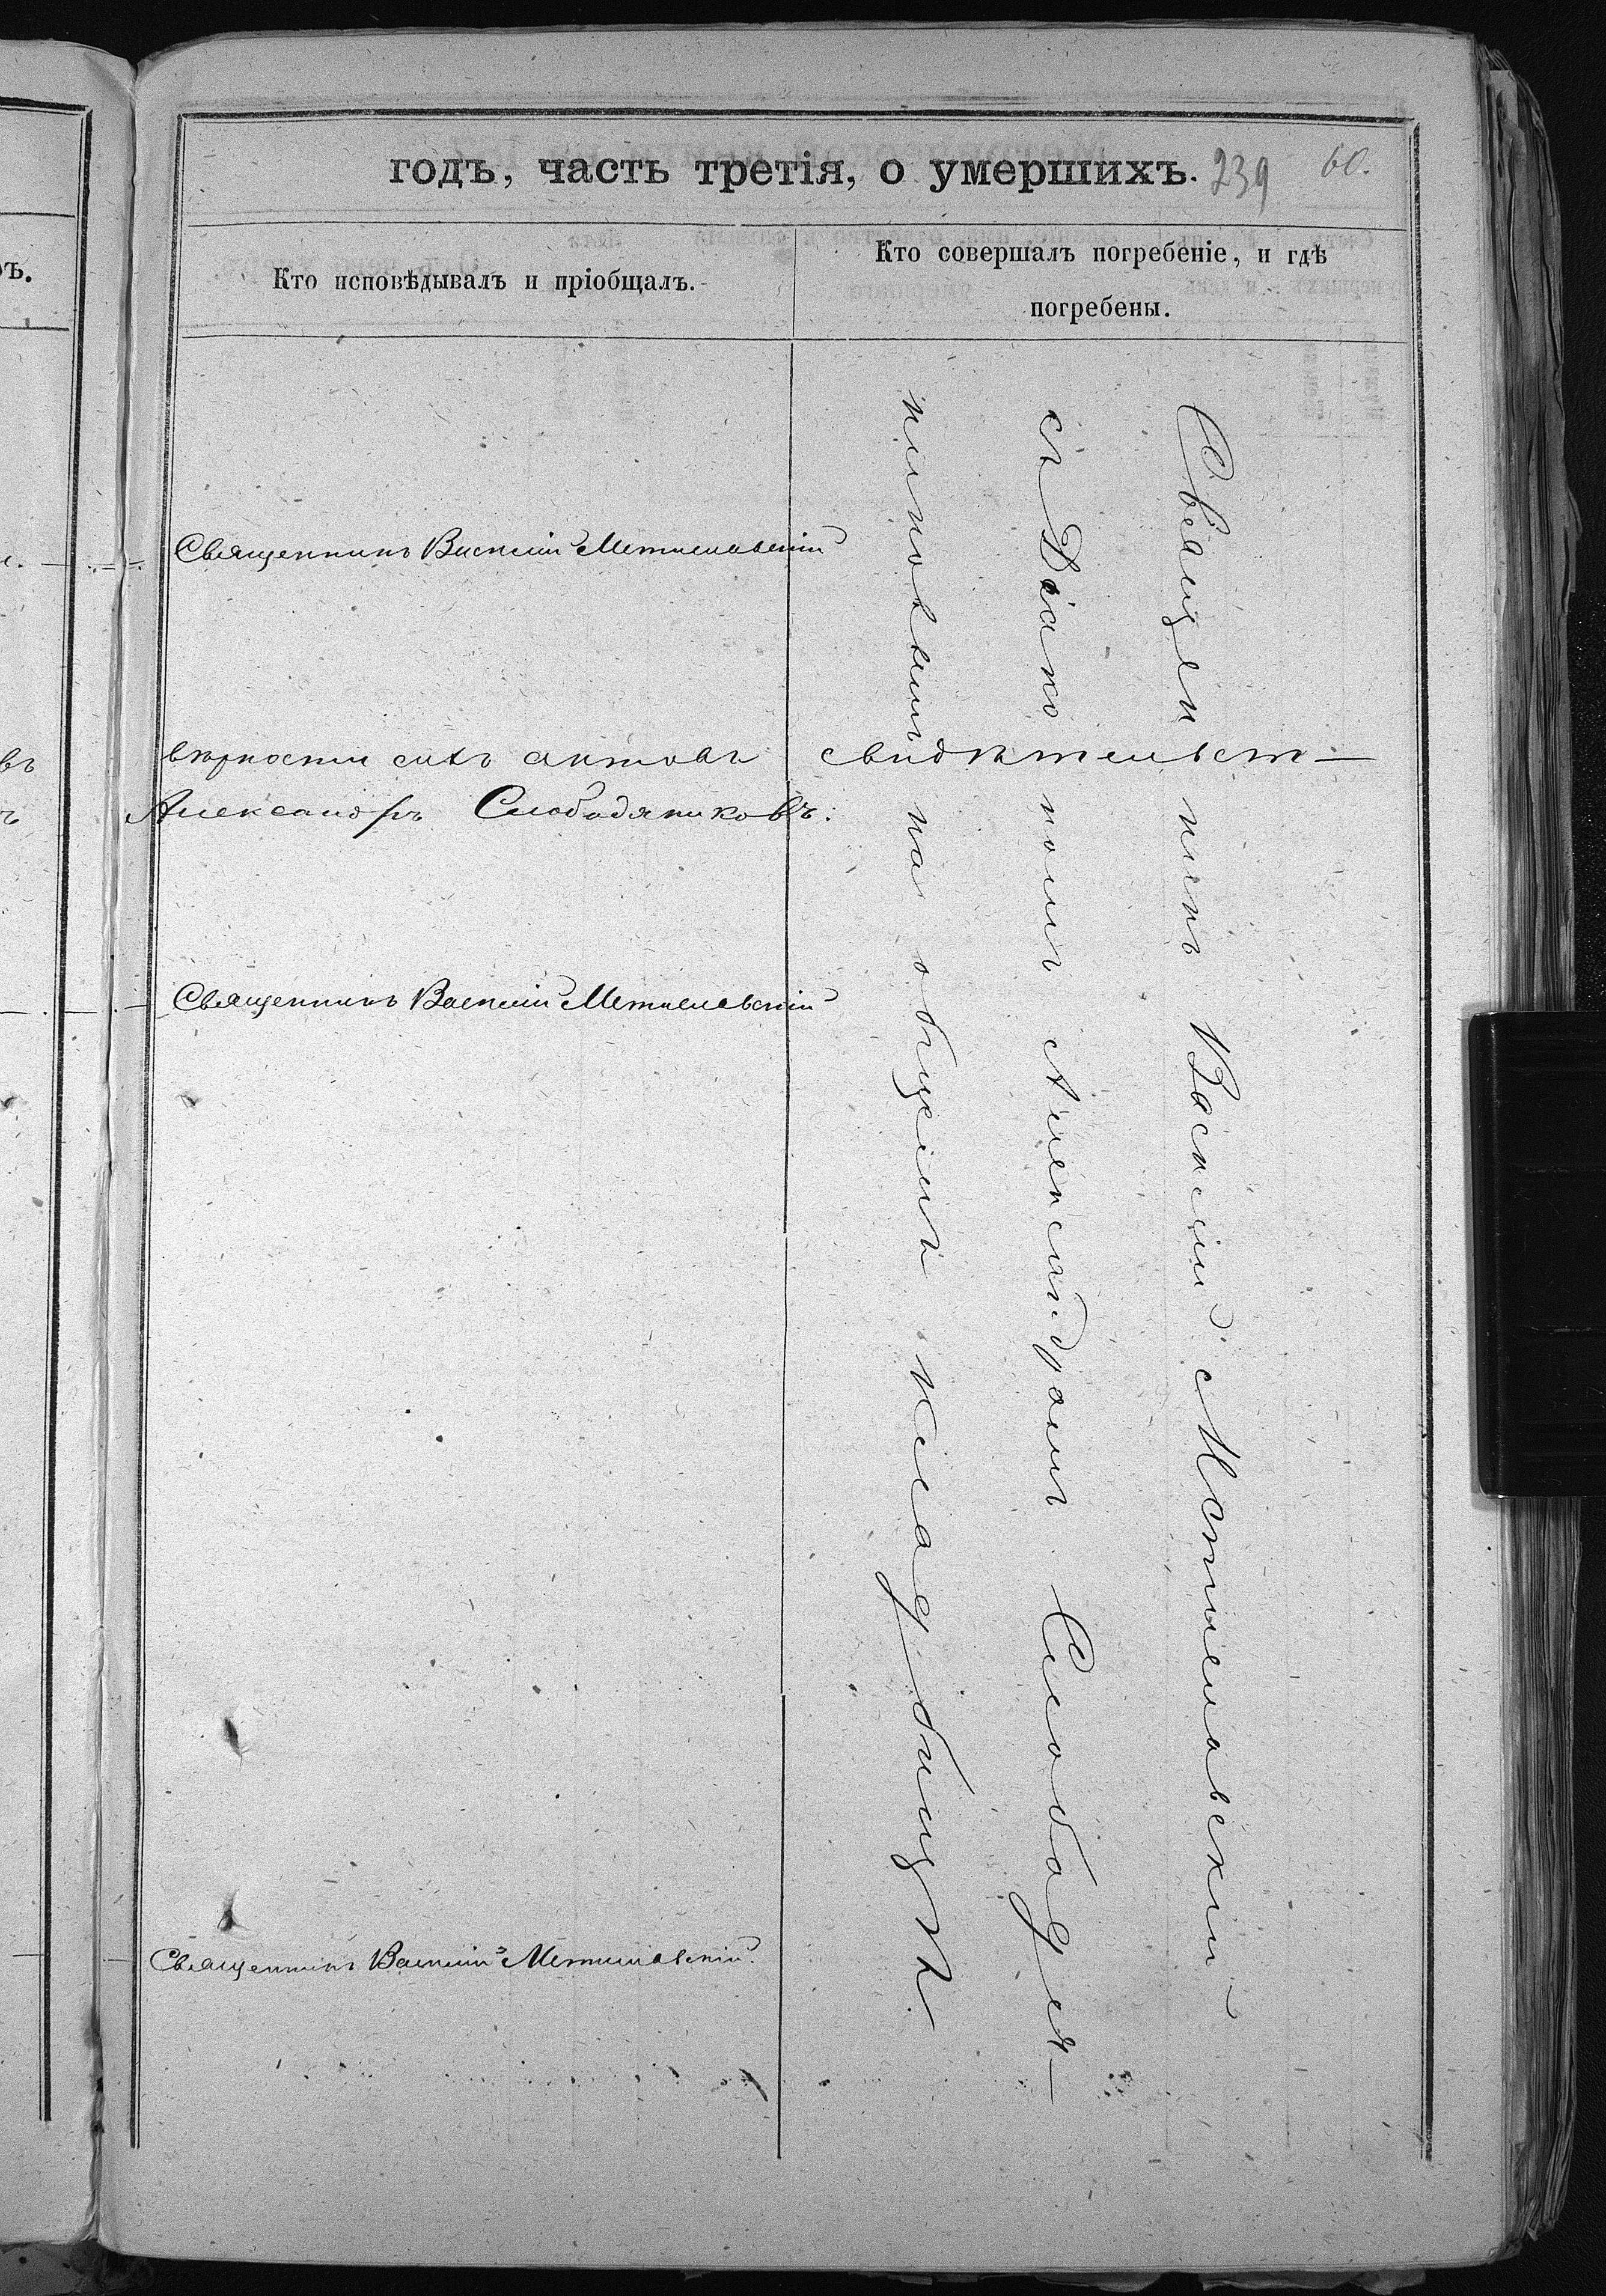 годъ, часть третія, о умершихъ. 239 60.
Кто исповѣдывалъ и пріобщалъ.
Кто совершалъ погребеніе, и гдѣ
погребены.
Священникъ Василій Мстиславскій
вѣрности сихъ актовъ свидѣтельст—
Александръ Слободяниковъ:
Священникъ Василій Мстиславскій
Священникъ Василій Мстиславскій.
Священникъ Василій Мстиславскій
съ Діакономъ Александромъ Слободя—
никовымъ на общемъ кладбищѣ